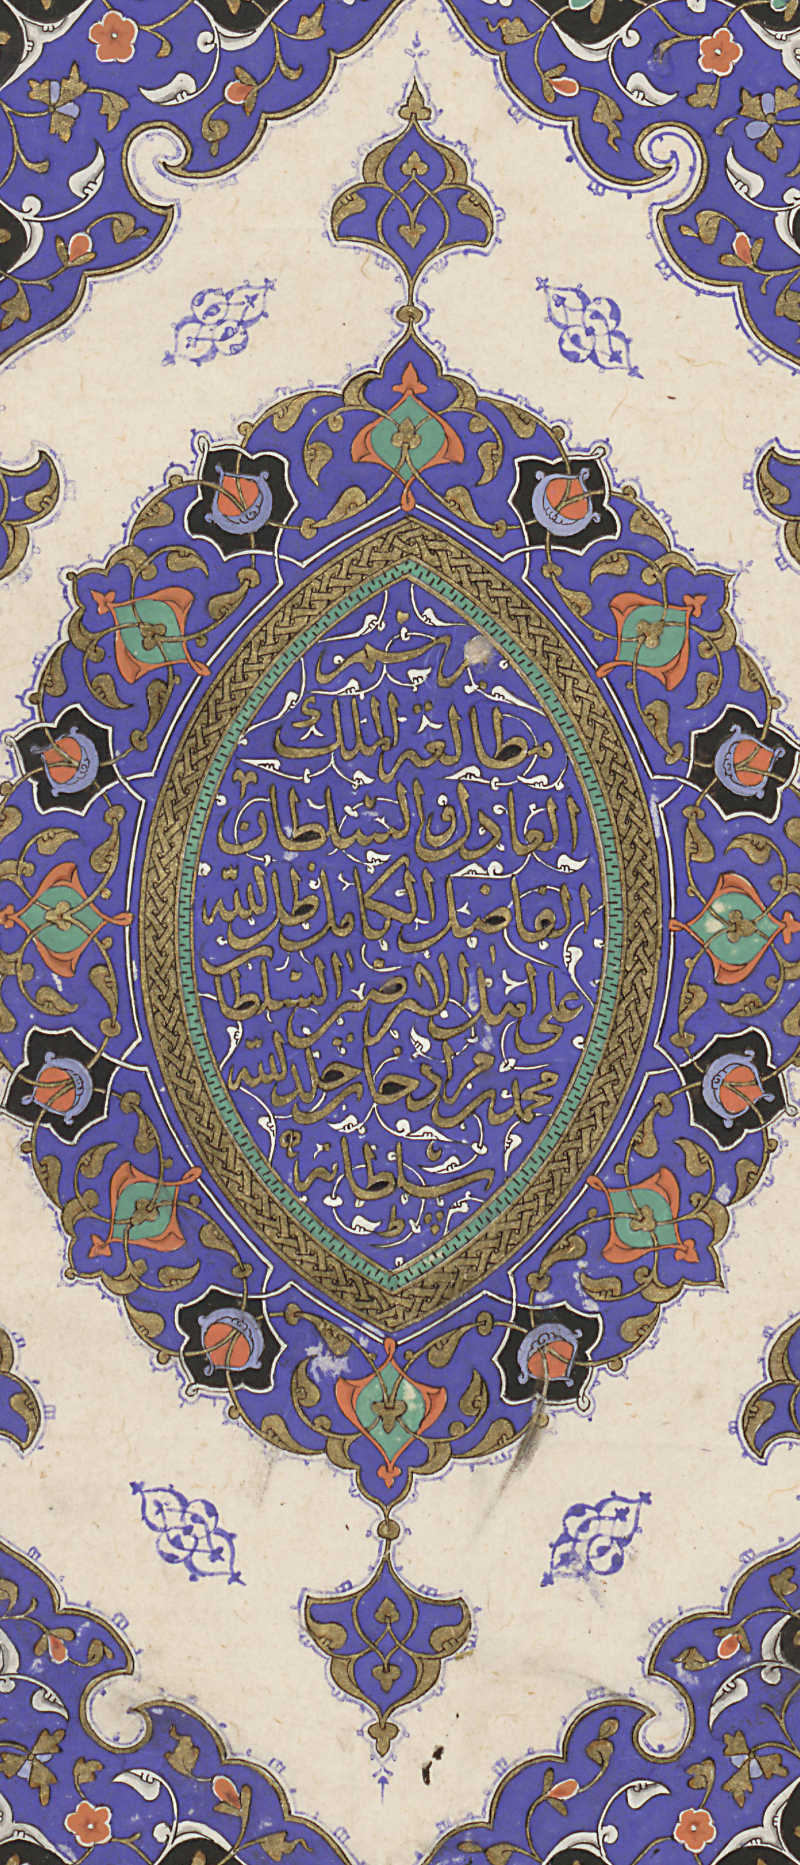 برسم
مطالعة الملك
العادل والسلطان
الفاضل الكامل ظل الله
على اهل الارضين السلطان
محمد بن مراد خان خلد الله
سلطانه